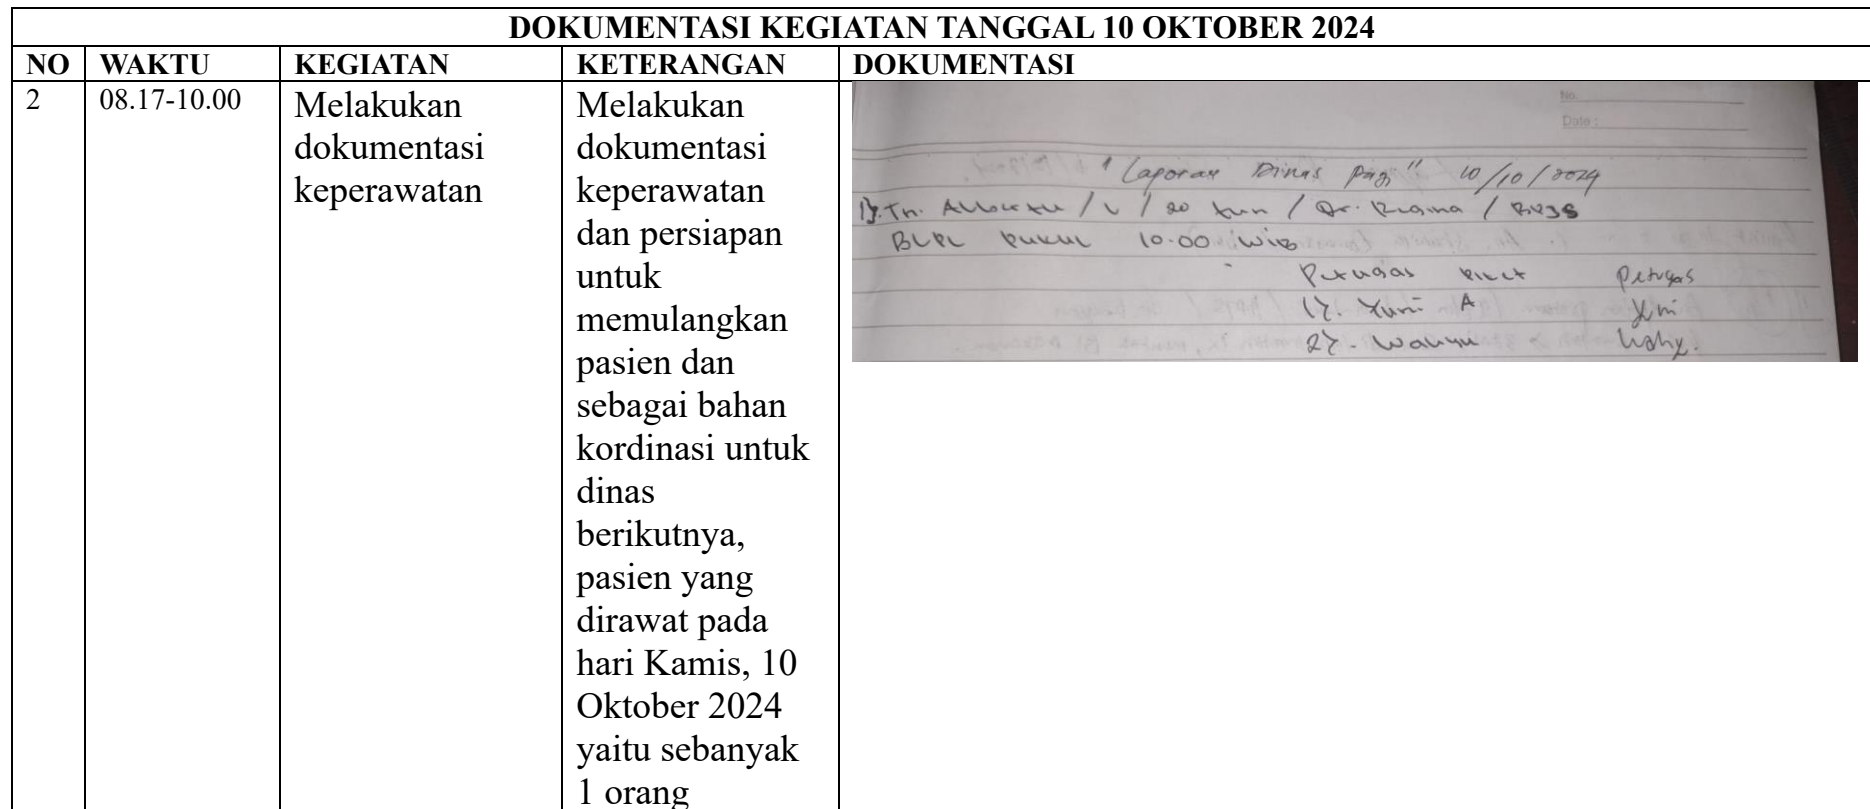 DOKUMENTASI KEGIATAN TANGGAL 10 OKTOBER 2024
NO WAKTU KEGIATAN KETERANGAN DOKUMENTASI
2
08.17-10.00
Melakukan
dokumentasi
keperawatan
Melakukan
dokumentasi
keperawatan
dan persiapan
untuk
memulangkan
pasien dan
sebagai bahan
kordinasi untuk
dinas
berikutnya,
pasien yang
dirawat pada
hari Kamis, 10
Oktober 2024
yaitu sebanyak
1 orang
No.
Date :
"Laporan Dinas pagi" 10/10/2024
1). Tn. / L / 20 thn / Dr. / BPJS
BLPL pukul 10.00 WIB
Petugas piket Petugas
1). Yuni A
2). Wahyu